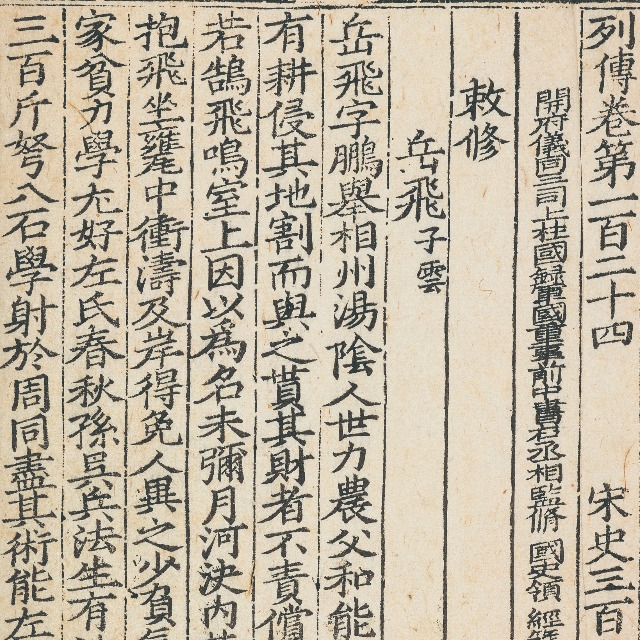 列傳卷第一百二十四 宋史三百
開府儀同三司上柱國錄軍國重事前中書右丞相監修 國史領 經
敕修
岳飛 子雲
岳飛字鵬舉相州湯陰人世力農父和能
有耕侵其地割而與之貰其財者不責償
若鵠飛鳴室上因以爲名未彌月河決内
抱飛坐甕中衝濤及岸得免人異之少負
家貧力學尤好左氏春秋孫吳兵法生有
三百斤弩八石學射於周同盡其術能左